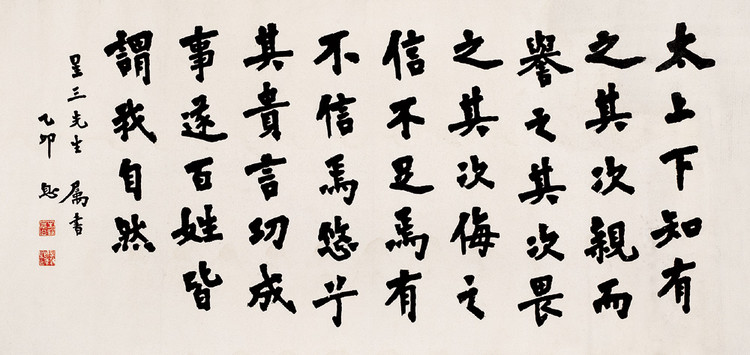 太上下知有
之其次親而
譽之其次畏
之其次侮之
信不足焉有
不信焉悠兮
其貴言功成
事遂百姓皆
謂我自然
星三先生 屬書
乙卯